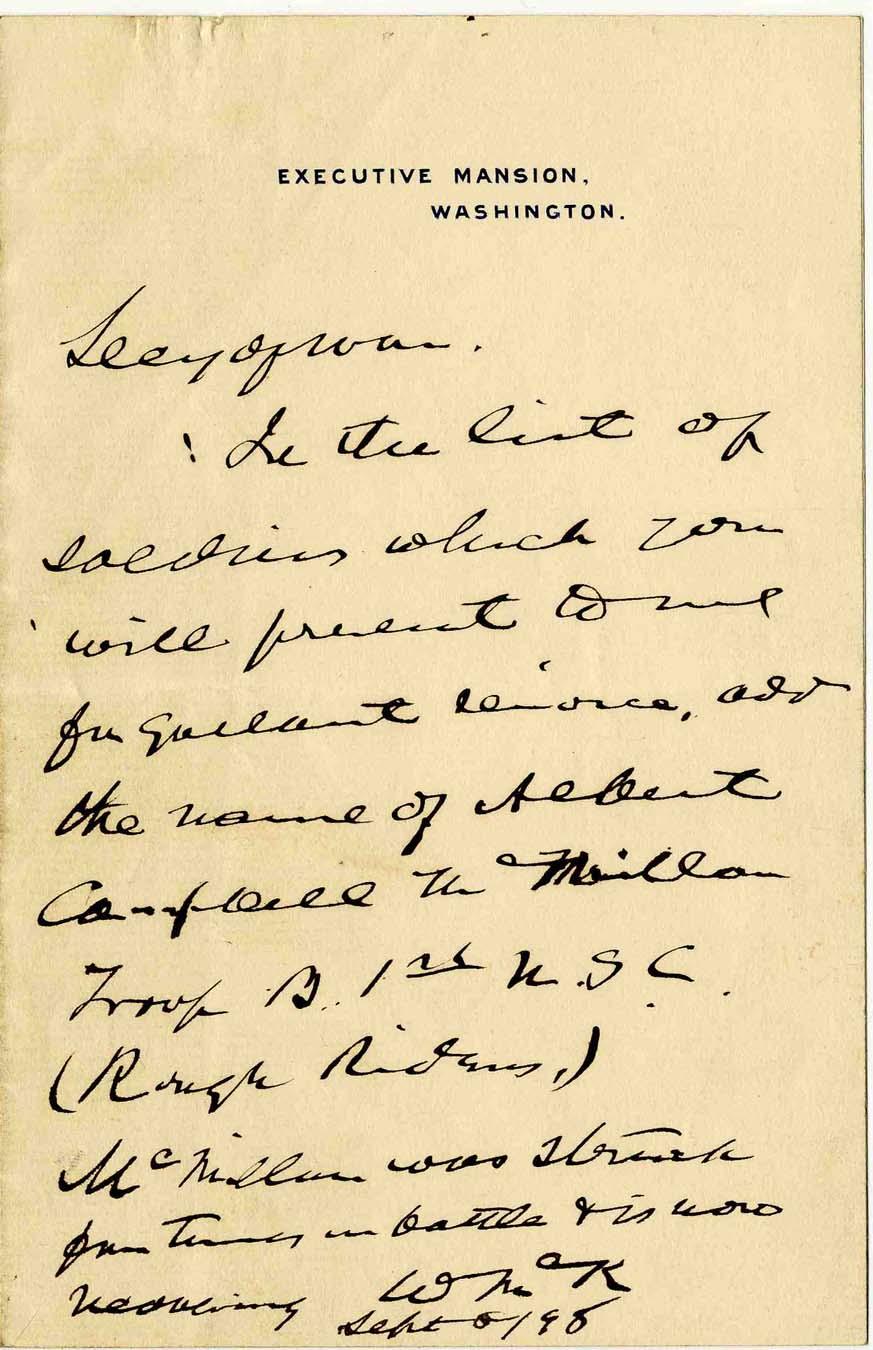 EXECUTIVE MANSION,
WASHINGTON.
Secy of War.
In the list of
soldiers which you
will present to me
for gallant service, add
the name of Albert
Campbell McMillan
Troop B. 1st U.S.C.
(Rough Riders,)
McMillan was struck
four times in battle & is now
recovering WMcK
Sept 98